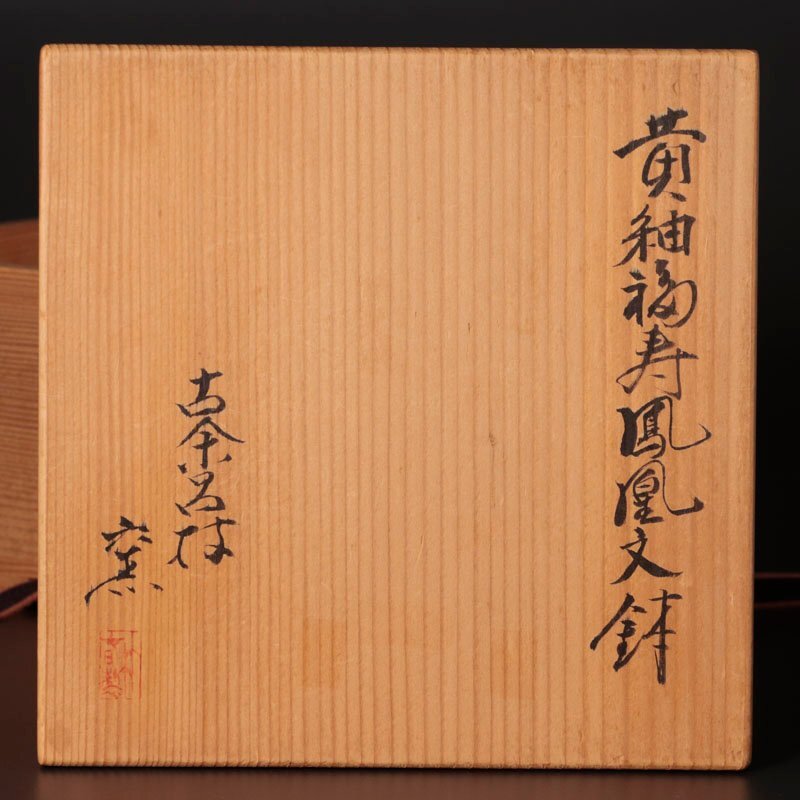 黄釉福寿鳳凰文鉢
古余呂技
窯